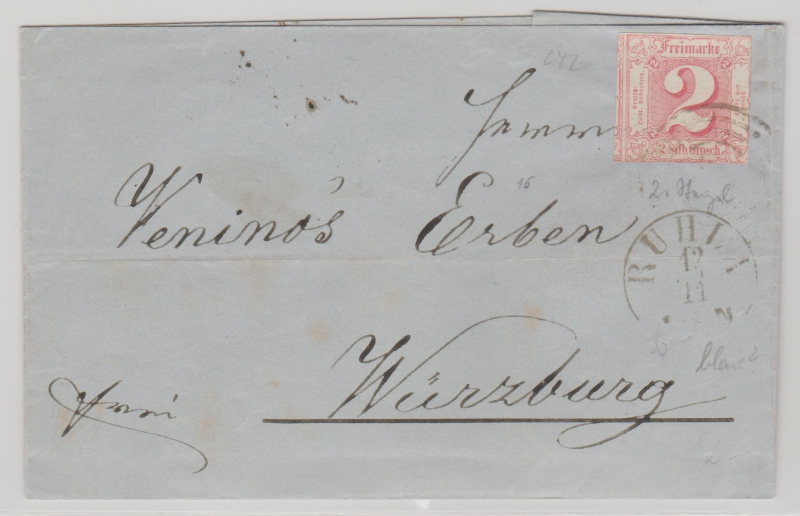 242
Freimarke
2
2 Silb. Grosch.
Herrn
Venino's Erben
16
2. Stempel
RUHLA
12
11
blau?
Würzburg
frei